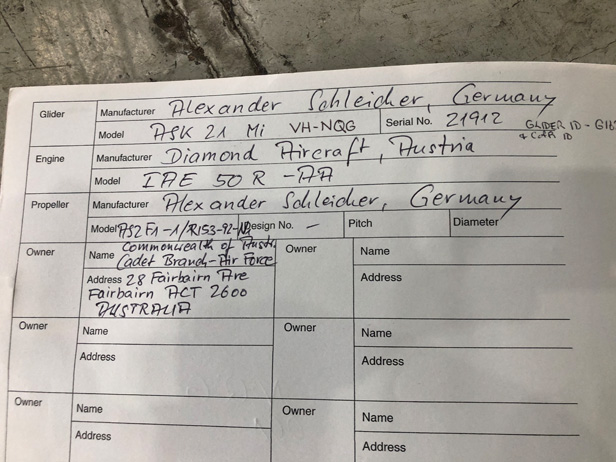 Glider Manufacturer Alexander Schleicher, Germany
Model ASK 21 Mi VH-NQG Serial No. 21912 GLIDER ID - G
& COFR ID
Engine Manufacturer Diamond Aircraft, Austria
Model IAE 50 R - AA
Propeller Manufacturer Alexander Schleicher, Germany
Model AS2F1-1/R153-92-N1 Design No. - Pitch Diameter
Owner Name Commonwealth of Austr. Owner Name
Cadet Branch-Air Force
Address 28 Fairbairn Ave Address
Fairbairn ACT 2600
AUSTRALIA
Owner Name Owner Name
Address Address
Owner Name Owner Name
Address Address